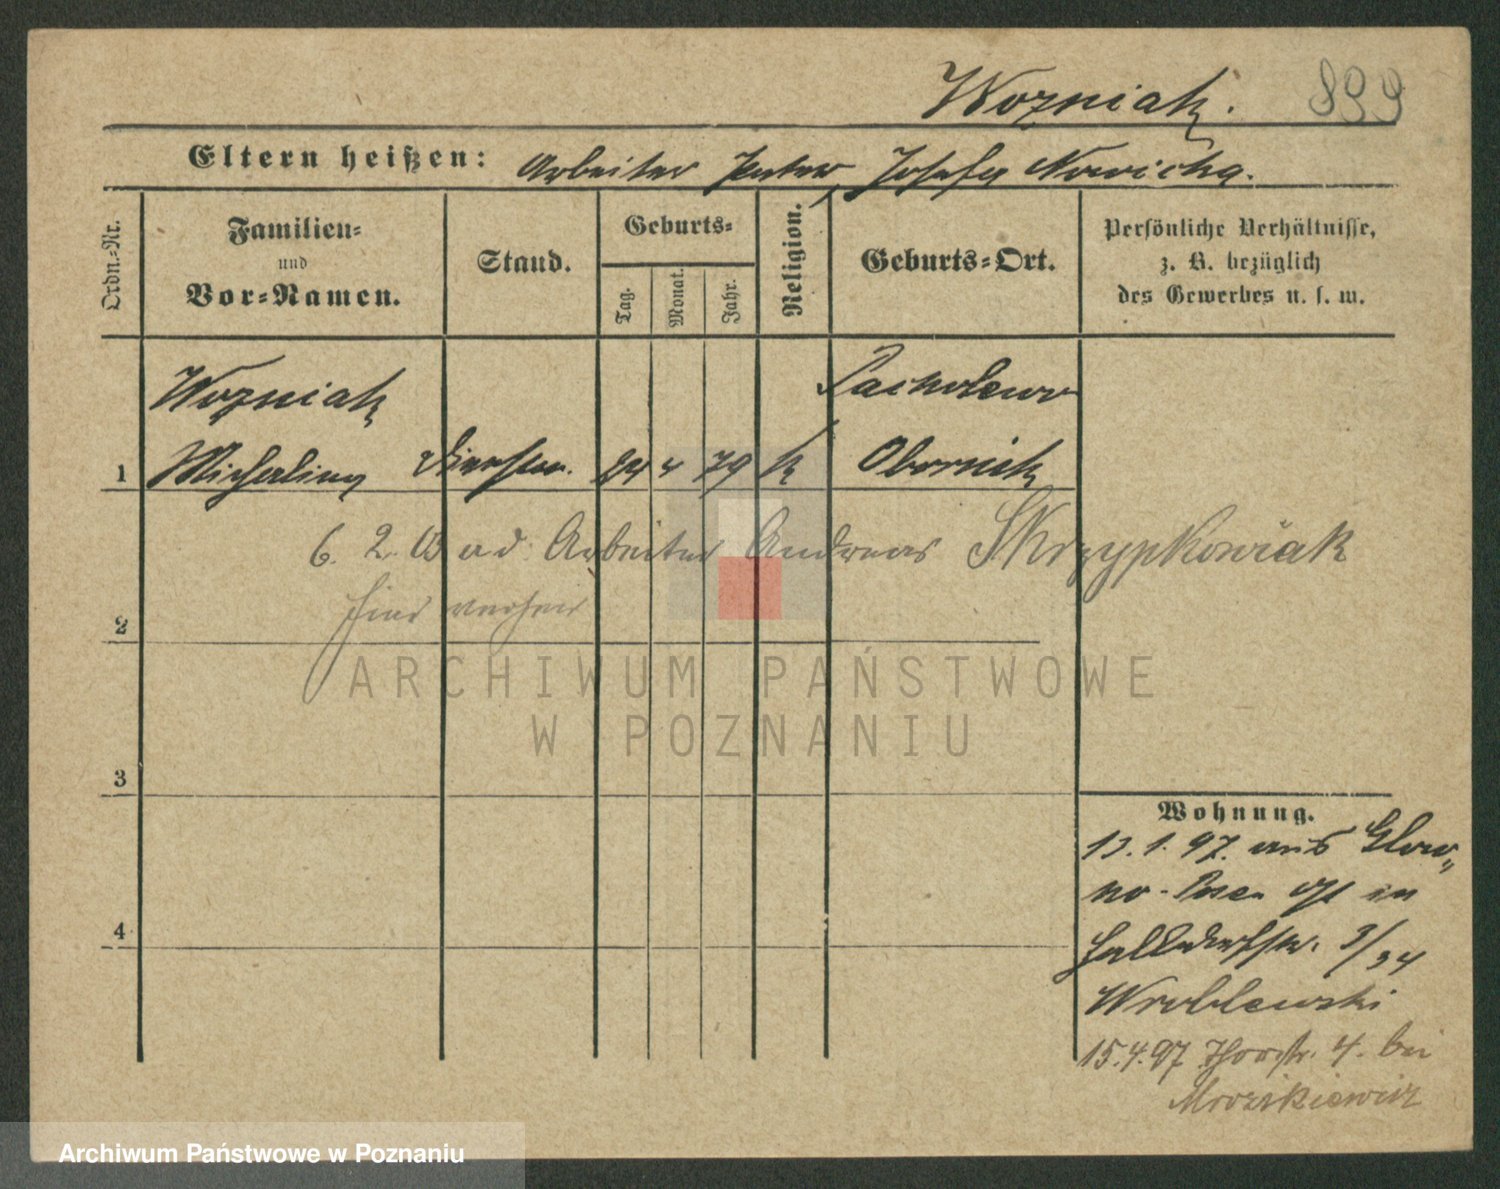 Wozniak. 899
Eltern heißen: Arbeiter Peter, Josefa Nowicka.
Ordn.-Nr.
Familien- und Vor-Namen.
Stand.
Geburts-
Tag.
Monat.
Jahr.
Religion.
Geburts-Ort.
Persönliche Verhältnisse,
z. B. bezüglich
des Gewerbes u. s. w.
Wozniak Pacholewo
1 Michalina 24 4 79 k Obornik
6. 2. 03 ad Arbeiter Andreas Skrzypkowiak
hier
2
3
4
Wohnung.
13. 1. 97. aus Glow„
no - Posen in
Halldorfstr. 9/34
Wroblewski
15.4.97 Thorstr. 4. bei
Mrozikiewicz
ARCHIWUM PAŃSTWOWE
W POZNANIU
Archiwum Państwowe w Poznaniu